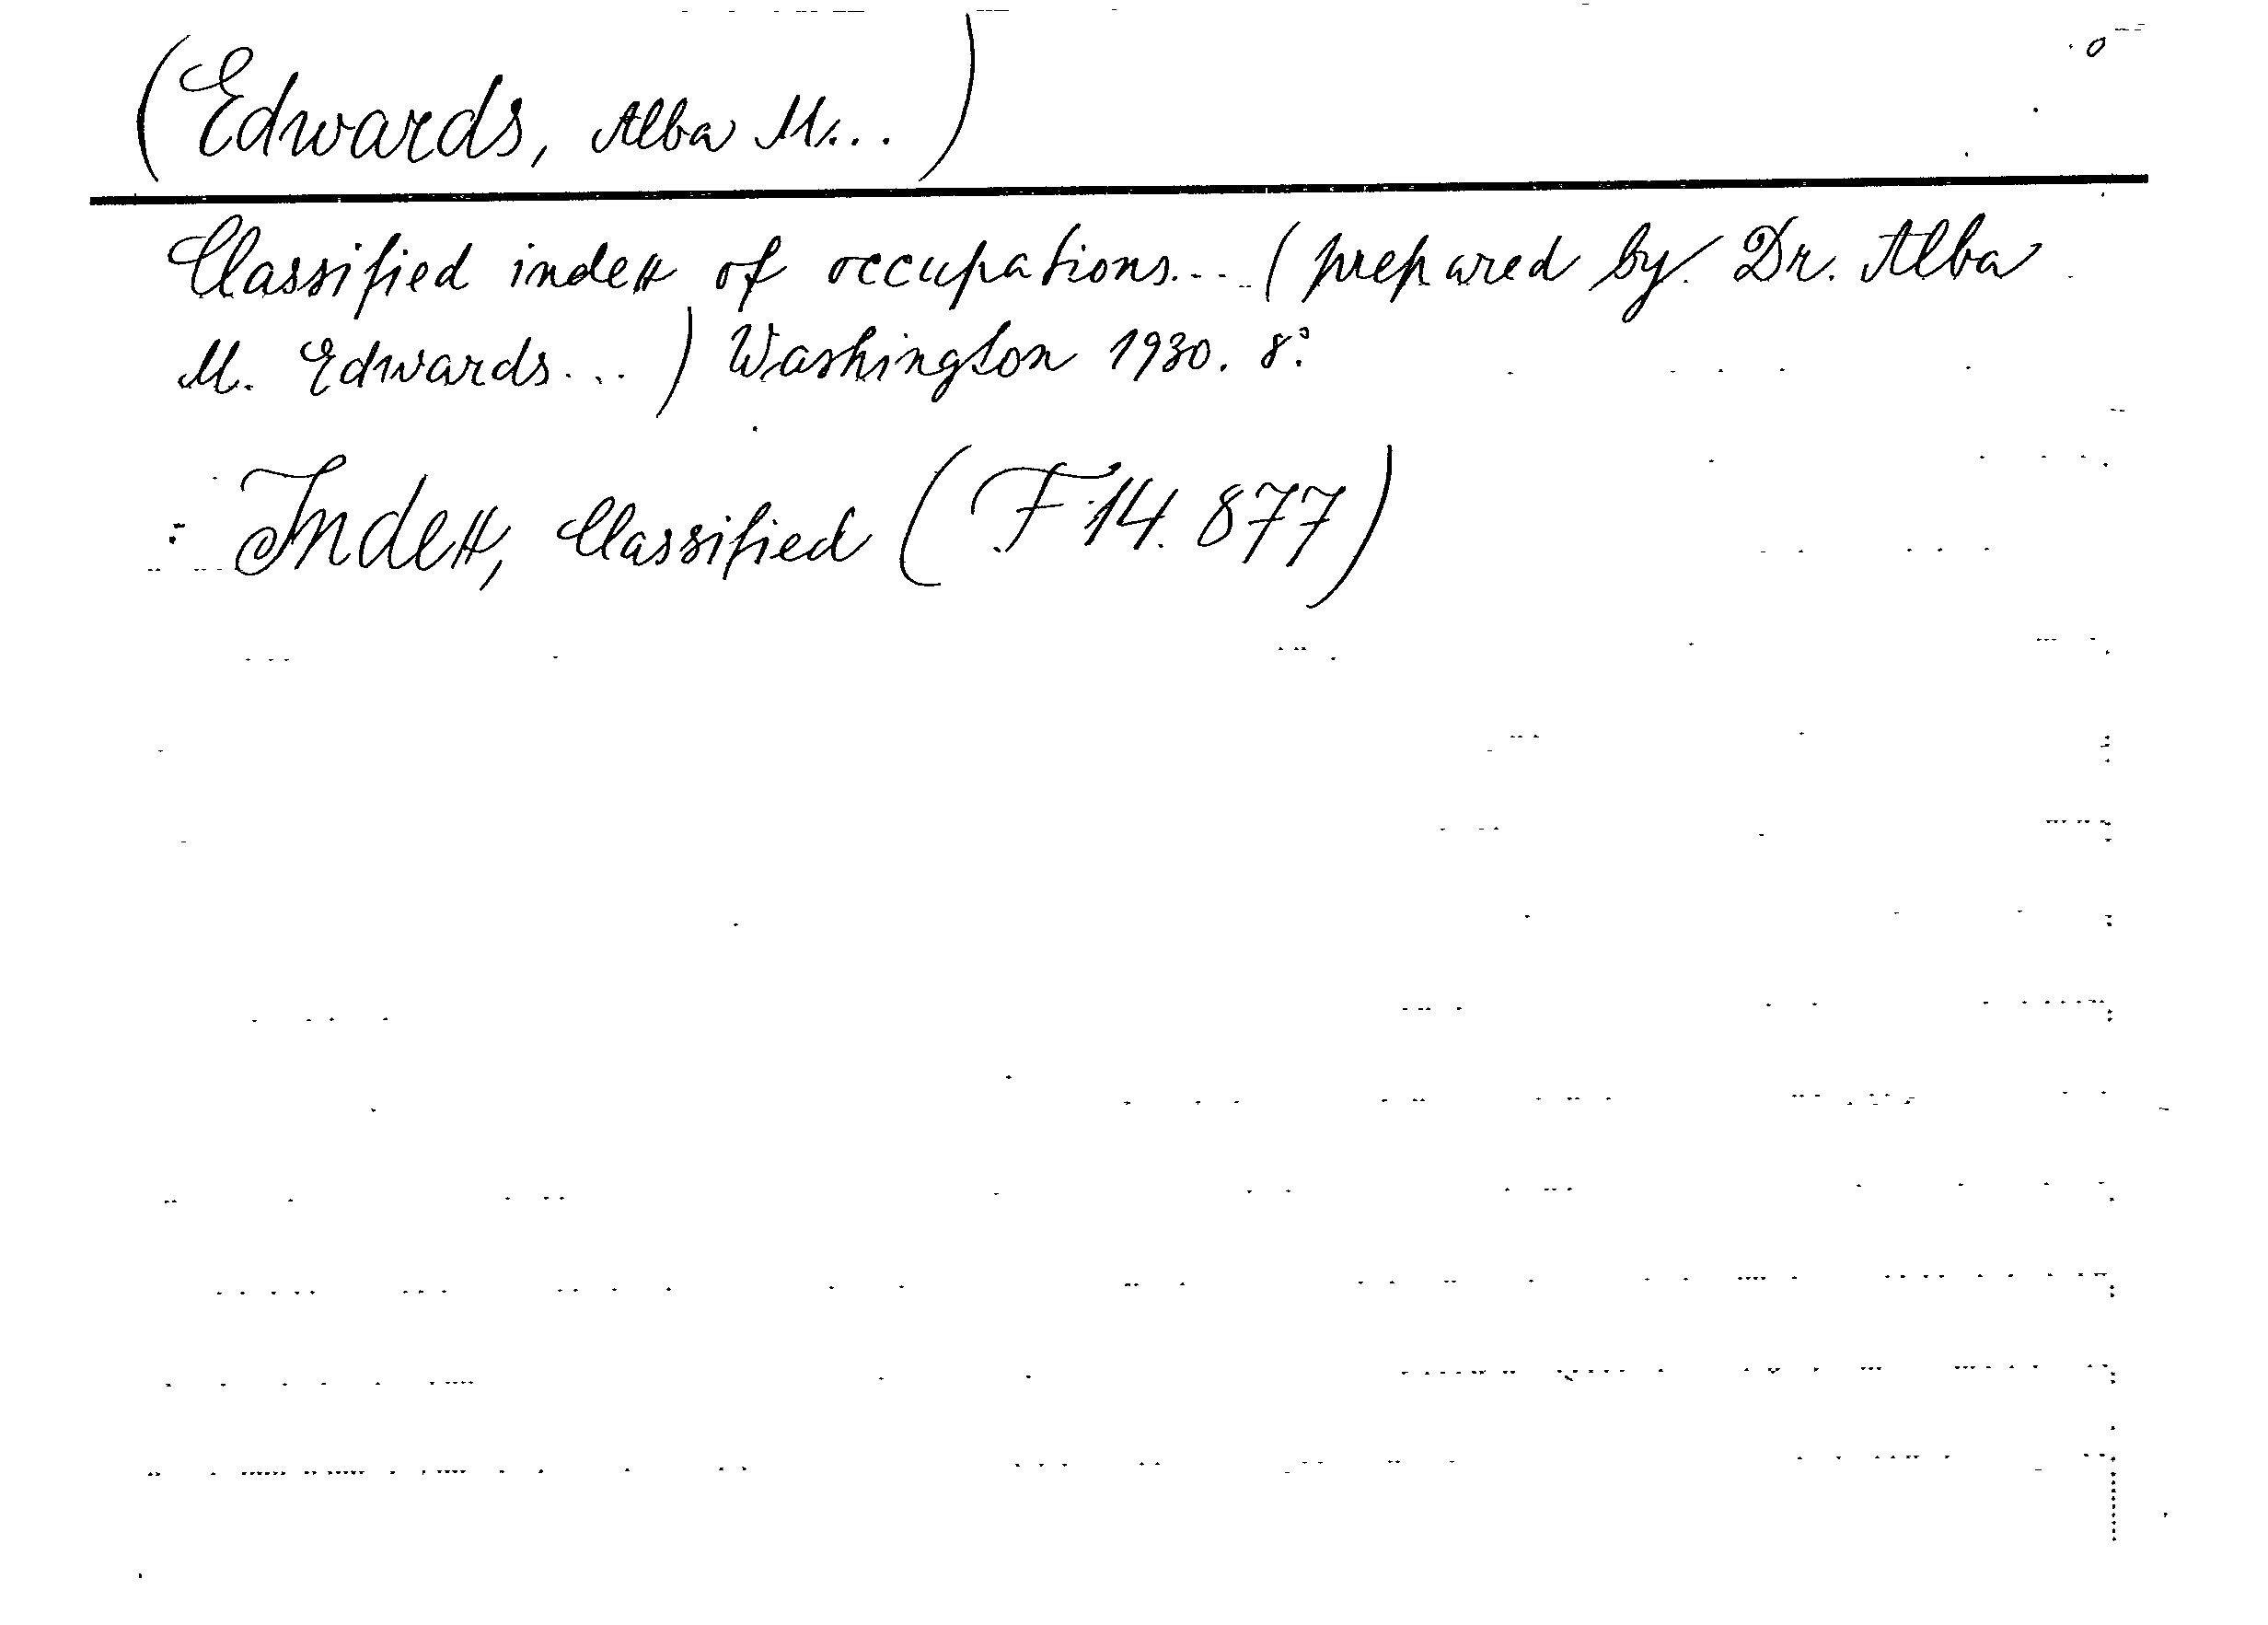 (Edwards, Alba M...)
Classified index of occupations... (prepared by Dr. Alba
M. Edwards...) Washington 1930. 8°.
: Index, Classified (F 14.877)